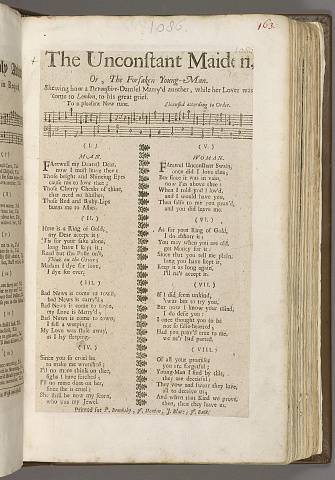 1086.
163.
The Unconstant Maiden,
Or, The Forsaken Young-Man.
Shewing how a Devonshire-Damsel Marry'd another, while her Lover was
come to London, to his great grief.
To a pleasant New tune. Licensed according to Order.
( I. )
MAN.
Farewel my Dearest Dear,
now I must leave thee
Those bright and Shineing Eyes
cause me to love thee;
Those Cherry Cheeks of thine,
that need no Blushes,
Those Red and Ruby Lips
burns me to Ashes.
( II. )
Here is a Ring of Gold,
my Dear accept it;
'Tis for your sake alone,
long have I kept it;
Read but the Posie on't,
Think on the Giver;
Madam I dye for love,
I dye for ever.
( III. )
Bad News is come to town,
bad News is carry'd;
Bad News is come to town,
my Love is Marry'd;
Bad News is come to town,
I fell a weeping;
My Love was stole away,
as I lay sleeping.
( IV. )
Since you so cruel be
to make me wretched;
I'll no more think on thee,
that have
I'll no more doat on her,
since she is cruel;
She shall be now my scorn,
who was my Jewel.
( V. )
WOMAN.
Ethereal Unconstant Swain,
once did I love thee,
But since it was in vain,
now I'm above thee:
When I told you I lov'd,
and I would have you,
That falls to me you prov'd,
and you did leave me.
( VI. )
As for your Ring of Gold,
I do abhorr it;
You may when you are old,
get Money for it:
Since that you tell me plain,
long you have kept it,
Keep it as long again,
I'll ne'er accept it.
( VII. )
If I did seem unkind,
'twas but to try you,
But now I know your mind,
I do defie you:
I once thought you to be
not so false-hearted;
Had you prov'd true to me,
we ne'r had parted.
( VIII. )
Of all your promises
you are forgetful;
Young-Man I find by this,
they are deceitful;
They vow and swear they love,
all to deceive us,
And when that Kind we prove,
then, then they leave us.
Printed for P. Brooksby, J. Deacon, J. Blare, J. Back.